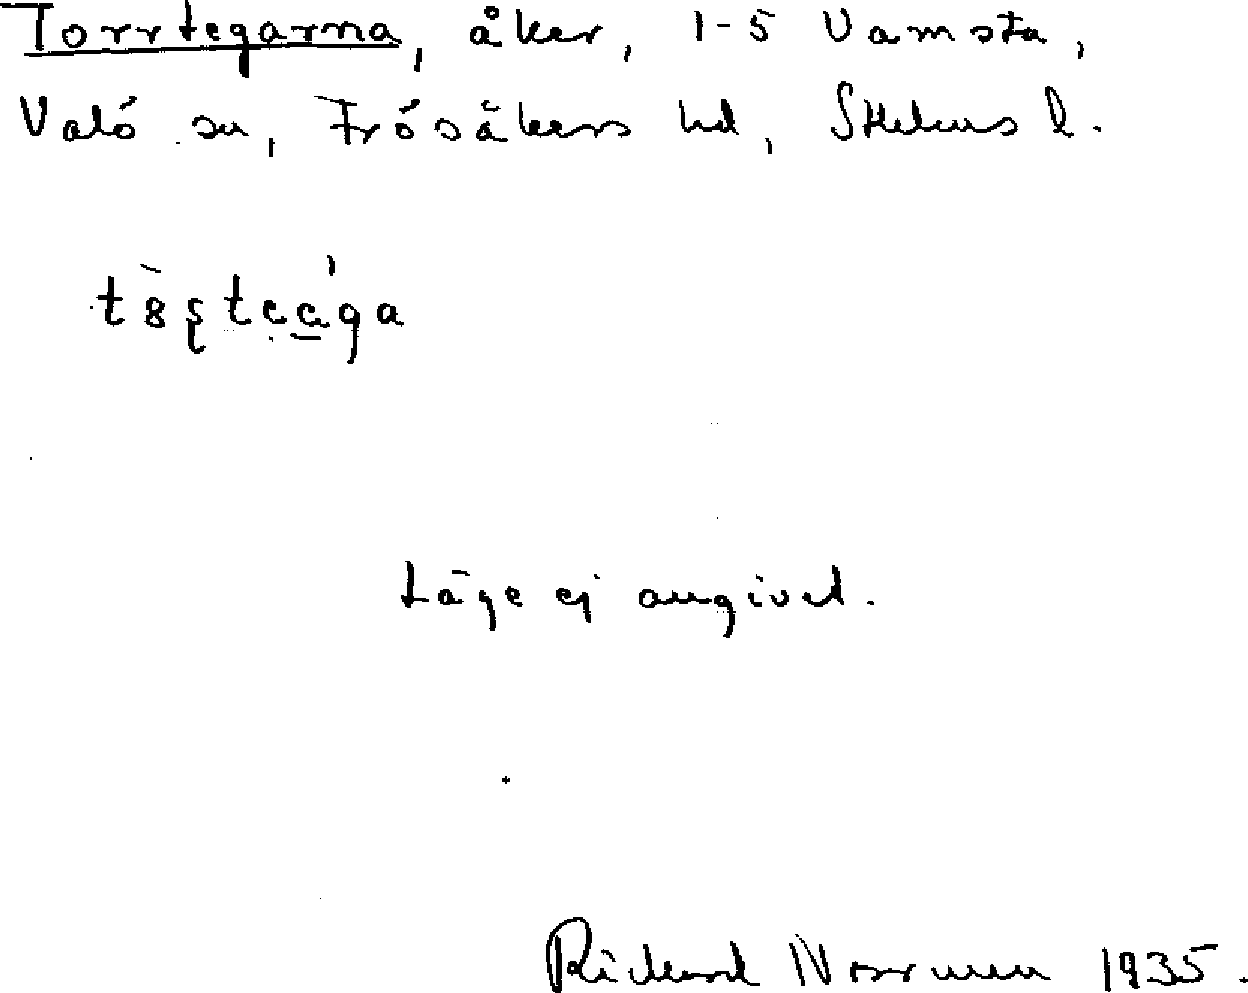 Torrtegarna, åker, 1-5 Vamsta,
Valö sn, Frösåkers hd, Sthlms l.
Läge ej angivet.
Rickard Norrman 1935.